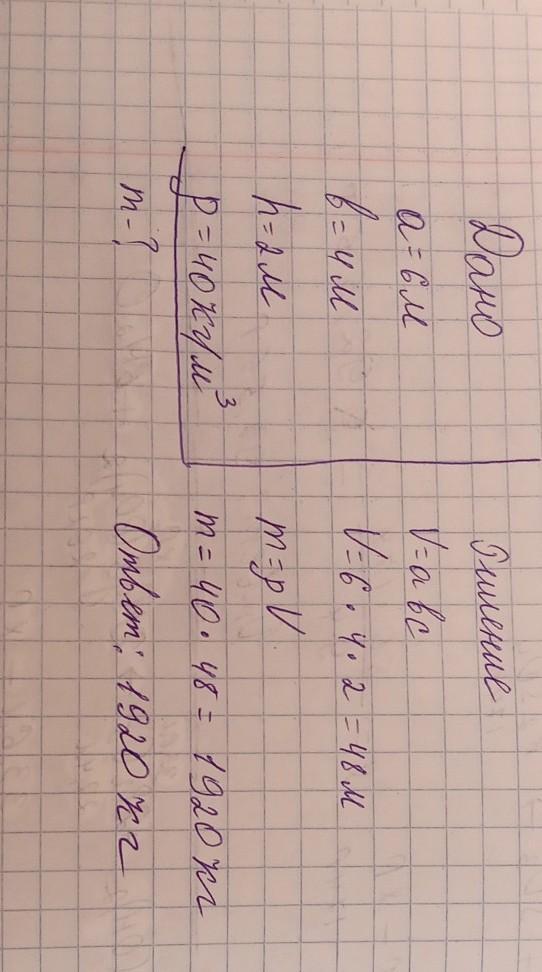 Дано
a = 6м
b = 4м
h = 2м
p = 40кг/м³
m-?
Решение
V=abc
V=6·4·2=48м
m=pV
m=40·48=1920кг
Ответ: 1920кг